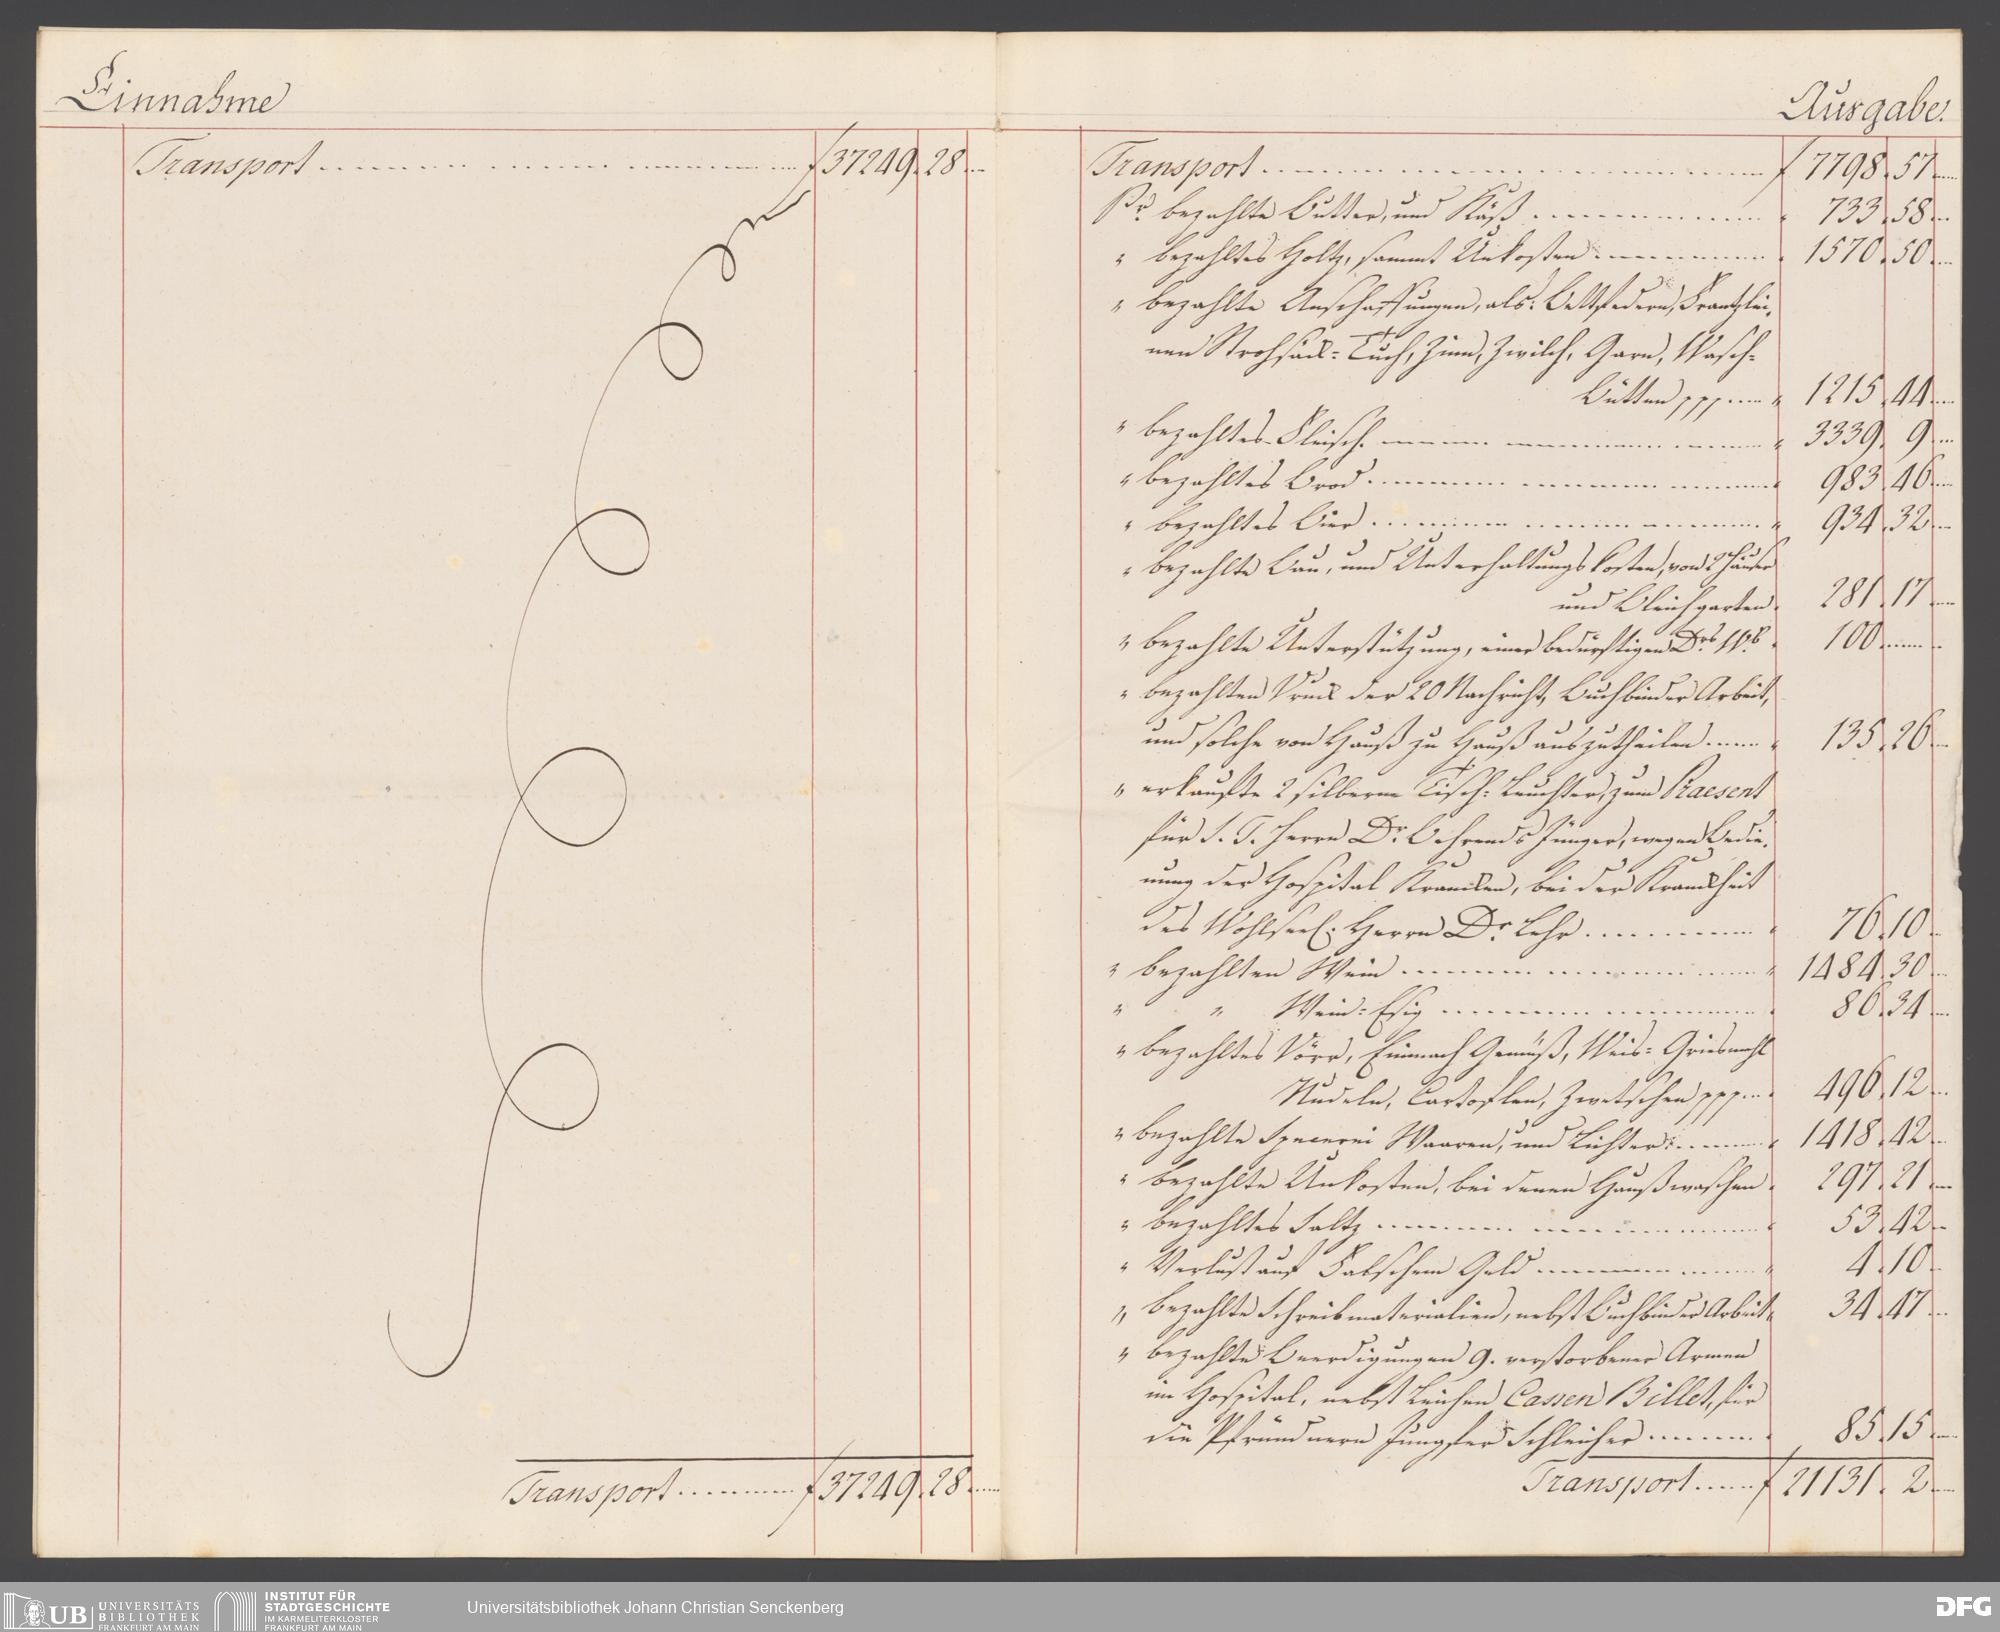 Einnahme
Transport ........ f 37249. 28 ...
Transport ........ f 37249. 28 ...
Ausgabe.
Transport ........ f 7798. 57 ...
Pr. bezahlte Butter, und Käß ........ " 733. 58 ...
" bezahltes Holtz, sammt Unkosten ........ " 1570. 50 ...
" bezahlte Anschaffungen, als: Bettfedern, Frantzlei,
nen Strohsack-Tuch, Zinn, Zwilch, Garn, Wasch-
Bütten ppp .... " 1215. 44 ...
" bezahltes Fleisch ........ " 3339. 9 ...
" bezahltes Brod ........ " 983. 46 ...
" bezahltes Bier ........ " 934. 32 ...
" bezahlte Bau, und Unterhaltungskosten, von 2 Häuser
und Bleichgarten " 281. 17 ...
" bezahlte Unterstützung, einer bedürftigen Drs " 100 ...
" bezahlten Druck der 20 Nachricht, Buchbinder Arbeit,
und solche von Hauß zu Hauß auszutheilen .... " 135. 26 ...
" erkaufte 2 silberne Tisch-Leuchter, zum Praesent
für S. T. Herrn Dr. Behrends Jünger, wegen Bedie,
nung der Hospital Krancken, bei der Kranckheit
des Wohlseel. Herrn Dr. Lehr ........ " 76. 10 ...
" bezahlten Wein ........ " 1484. 30 ...
" " Wein-Essig ........ " 86. 34 ...
" bezahltes Dörr, Einmach Gemüß, Weis- Griesmehl
Nudeln, Cartoflen, Zwetschen ppp .... " 496. 12 ...
" bezahlte Specerei Waaren, und Lichter ........ " 1418. 42 ...
" bezahlte Unkosten, bei denen Haußwaschen " 297. 21 ...
" bezahltes Saltz ........ " 53. 42 ...
" Verlust auf Falschem Geld ........ " 4. 10 ...
" bezahlte Schreibmaterialien, nebst Buchbinder Arbeit " 34. 47 ...
" bezahlte Beerdigungen 9. verstorbener Armen
im Hospital, nebst Leichen Cassen Billet, für
die Pfründnern Jungfer Schleicher ........ " 85. 15 ...
Transport ...... f 21131. 2 ...
UB UNIVERSITÄTS
BIBLIOTHEK
FRANKFURT AM MAIN
INSTITUT FÜR
STADTGESCHICHTE
IM KARMELITERKLOSTER
FRANKFURT AM MAIN
Universitätsbibliothek Johann Christian Senckenberg
DFG